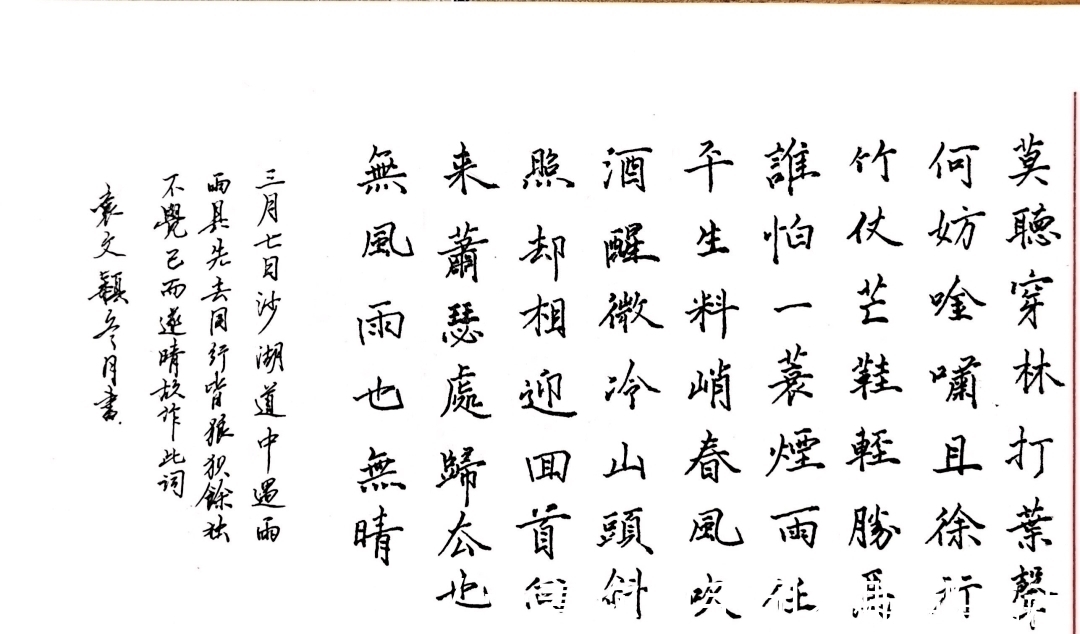 莫聽穿林打葉聲
何妨唫嘯且徐行
竹仗芒鞋輕勝馬
誰怕一蓑煙雨任
平生料峭春風吹
酒醒微冷山頭斜
照却相迎回首向
来蕭瑟處歸去也
無風雨也無晴
三月七日沙湖道中遇雨
雨具先去同行皆狼狽餘独
不覺已而遂晴故作此词
袁文穎冬月書